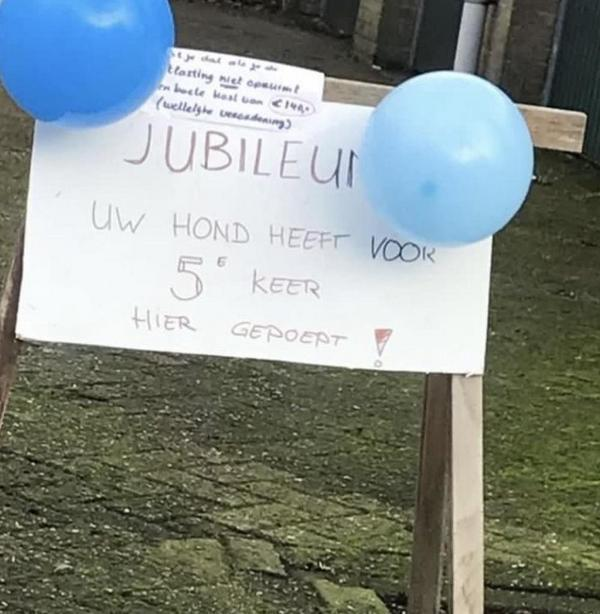 je dat als je de
niet opruimt
boete kost van €140,-
(wettelijke verordening)
JUBILEU
UW HOND HEEFT VOOR
5E KEER
HIER GEPOEPT!